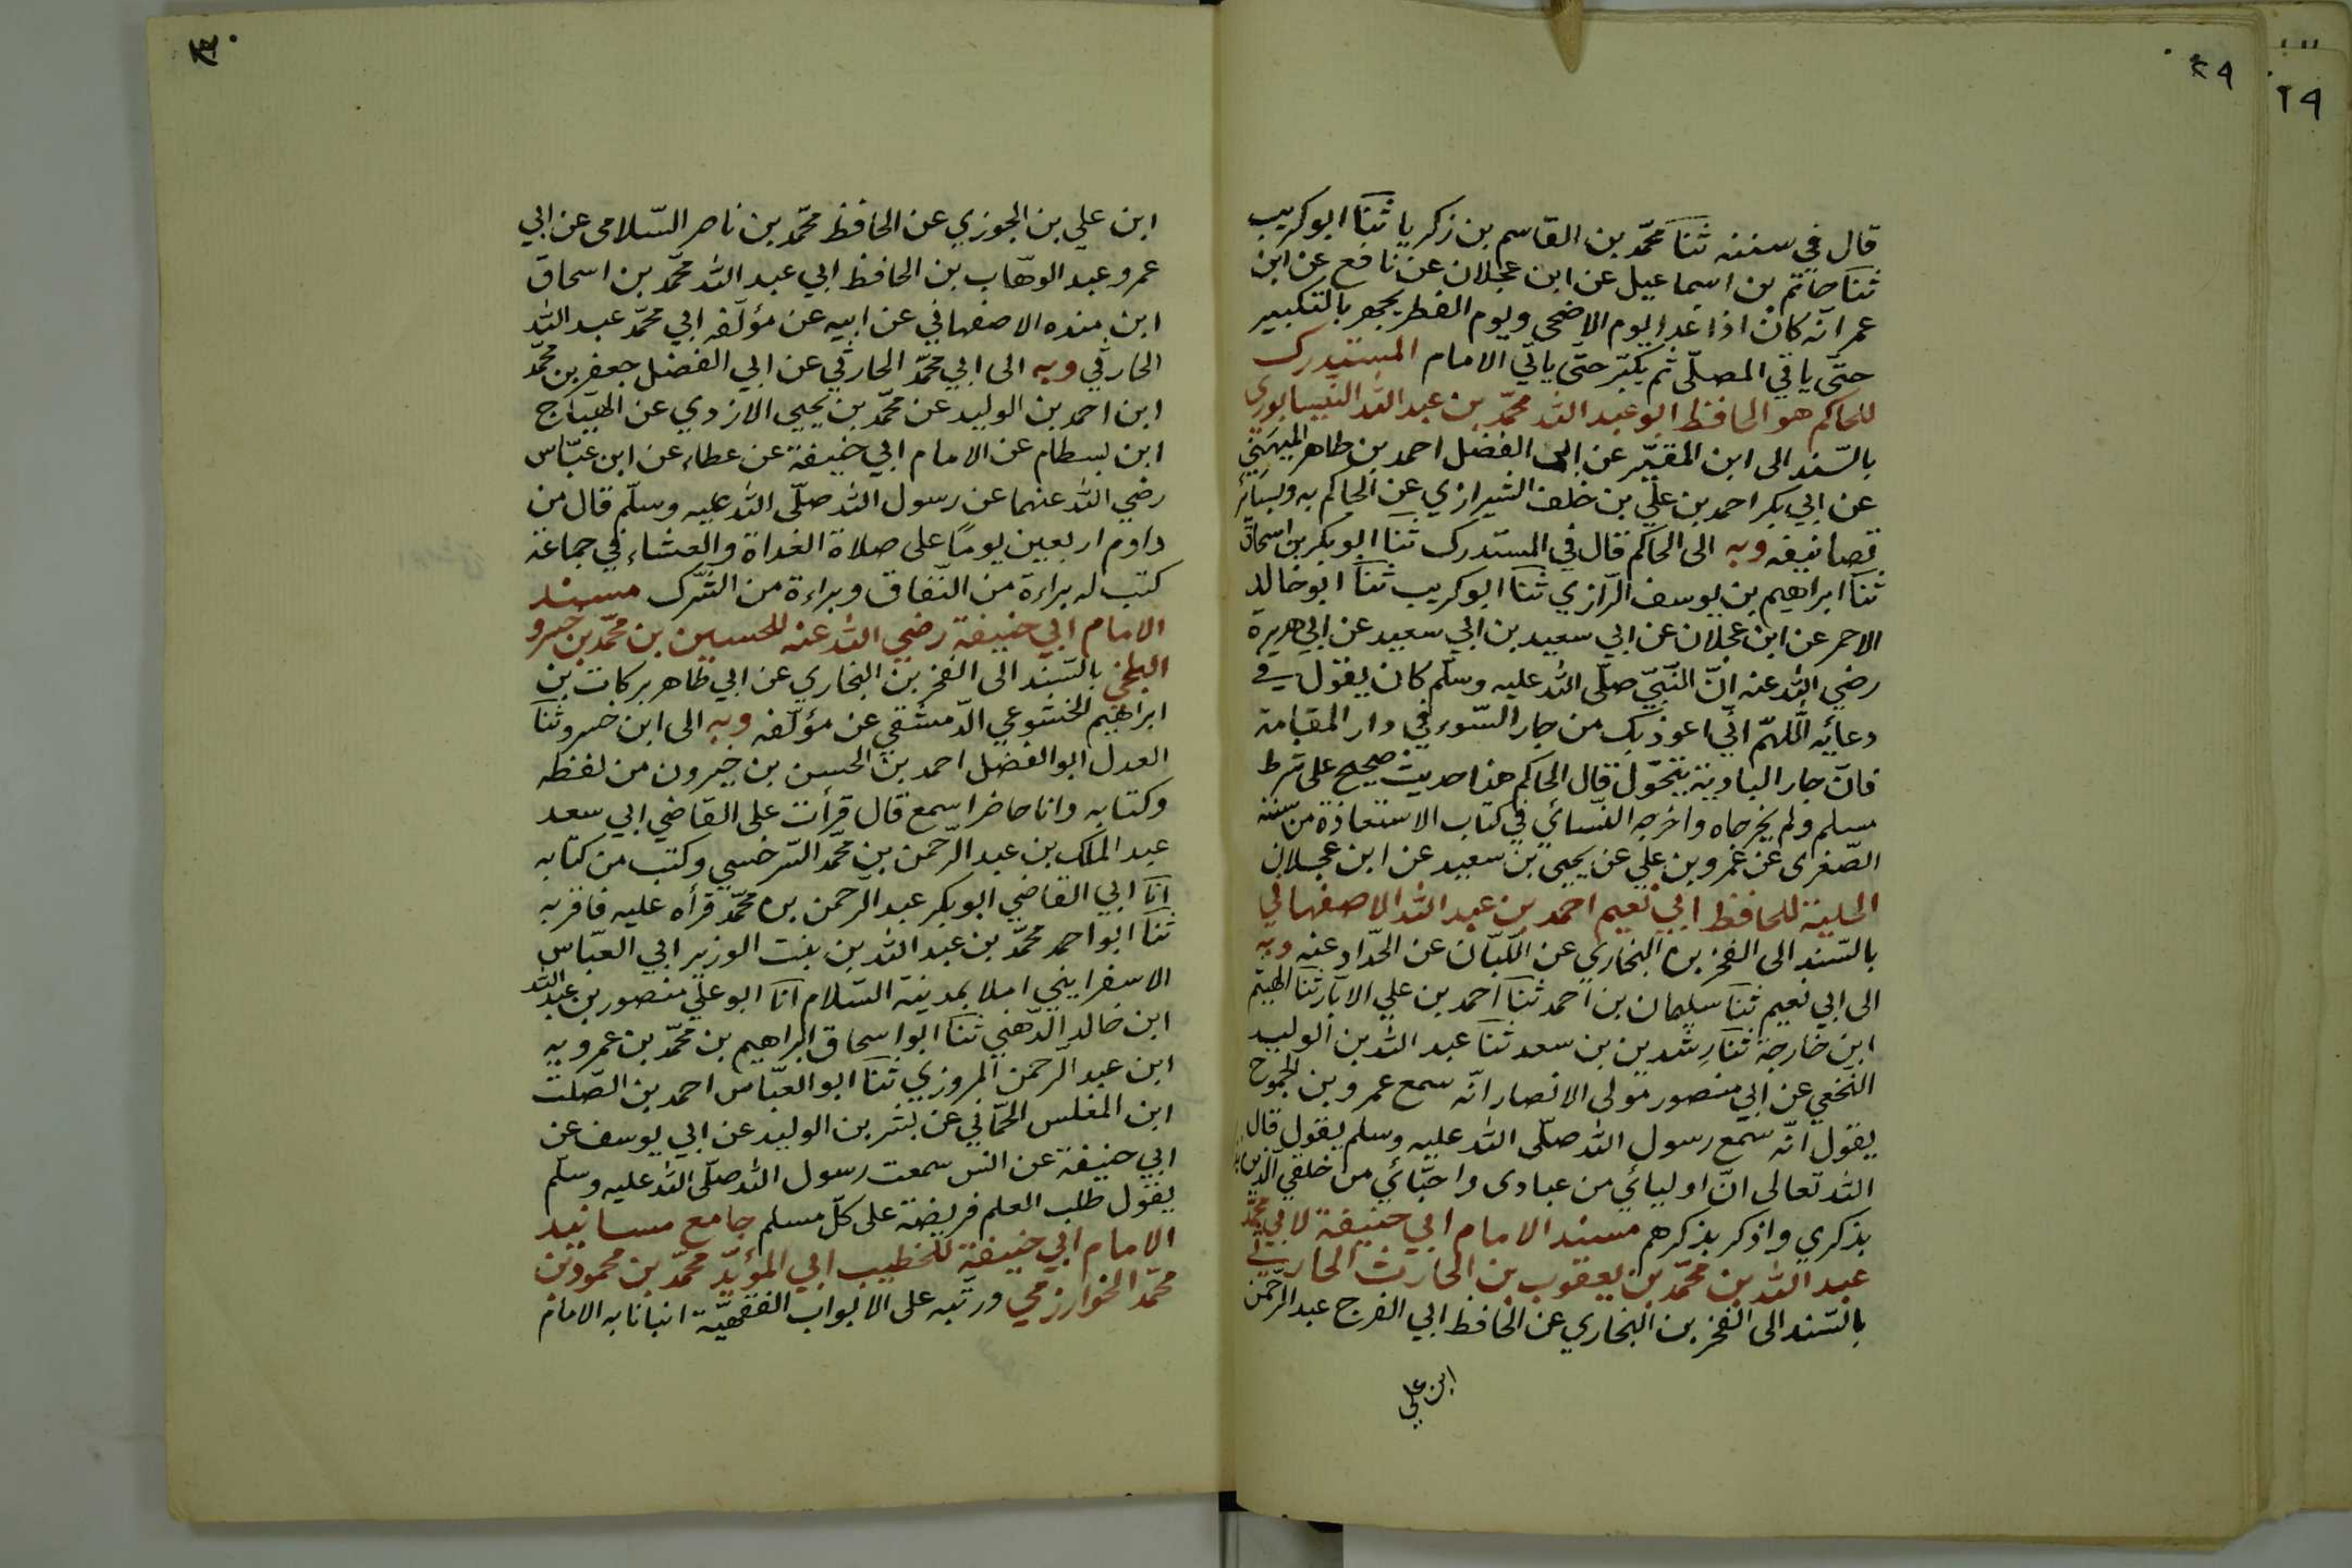 ٢٩
٢٩
قال في سننه ثنا محمّد بن القاسم بن زكريا ثنا ابو كريب
ثنا حاتم بن اسماعيل عن ابن عجلان عن نافع عن ابن
عمر انّه كان اذا غدا يوم الاضحى ويوم الفطر يجهر بالتكبير
حتّى ياتي المصلّى ثم يكبّر حتّى ياتي الامام المستدرك
للحاكم هو الحافظ ابو عبد الله محمّد بن عبد الله النيسابوري
بالسّند الى ابن المقيّر عن ابي الفضل احمد بن طاهر الميهني
عن ابي بكر احمد بن علي بن خلف الشيرازي عن الحاكم به وبسائر
تصانيفه وبه الى الحاكم قال في المستدرك ثنا ابو بكر بن اسحاق
ثنا ابراهيم بن يوسف الرّازي ثنا ابو كريب ثنا ابو خالد
الاحمر عن ابن عجلان عن ابي سعيد بن ابي سعيد عن ابي هريرة
رضي الله عنه انّ النّبيّ صلّى الله عليه وسلّم كان يقول في
دعائه اللّهمّ انّي اعوذ بك من جار السّوء في دار المقامة
فانّ جار البادية يتحوّل قال الحاكم هذا حديث صحيح على شرط
مسلم ولم يخرجاه واخرجه النّسائي في كتاب الاستعاذة من سننه
الصّغرى عن عمرو بن علي عن يحيى بن سعيد عن ابن عجلان
الحلية للحافظ ابي نعيم احمد بن عبد الله الاصفهاني
بالسّند الى الفخر بن البخاري عن اللّبّان عن الحدّاد عنه وبه
الى ابي نعيم ثنا سليمان بن احمد ثنا احمد بن علي الابّار ثنا الهيثم
ابن خارجة ثنا رشدين بن سعد ثنا عبد الله بن الوليد
النّخعي عن ابي منصور مولى الانصار انّه سمع عمرو بن الجموح
يقول انّه سمع رسول الله صلّى الله عليه وسلم يقول قال
الله تعالى انّ اوليائي من عبادى واحبّائي من خلقي الّذين
بذكري واذكر بذكرهم مسند الامام ابي حنيفة لابي محمّد
عبد الله بن محمّد بن يعقوب بن الحارث الحارثي
بالسّند الى الفخر بن البخاري عن الحافظ ابي الفرج عبد الرّحمن
ابن علي
٣٠
ابن علي بن الجوزي عن الحافظ محمّد بن ناصر السّلامى عن ابي
عمرو عبد الوهّاب بن الحافظ ابي عبد الله محمّد بن اسحاق
ابن منده الاصفهاني عن ابيه عن مؤلّفه ابي محمّد عبد الله
الحارثي وبه الى ابي محمّد الحارثي عن ابي الفضل جعفر بن محمّد
ابن احمد بن الوليد عن محمّد بن يحيى الازدي عن الهيّاج
ابن بسطام عن الامام ابي حنيفة عن عطاء عن ابن عبّاس
رضي الله عنهما عن رسول الله صلّى الله عليه وسلّم قال من
داوم اربعين يوماً على صلاة الغداة والعشاء في جماعة
كتب له براءة من النّفاق وبراءة من الشّرك مسند
الامام ابي حنيفة رضي الله عنه للحسين بن محمّد بن خسرو
البلخي بالسّند الى الفخر بن البخاري عن ابي طاهر بركات بن
ابراهيم الخشوعي الدّمشقي عن مؤلّفه وبه الى ابن خسرو ثنا
العدل ابو الفضل احمد بن الحسن بن خيرون من لفظه
وكتابه وانا حاضر اسمع قال قرأت على القاضي ابي سعد
عبد الملك بن عبد الرّحمن بن محمّد السّرخسي وكتب من كتابه
انا ابي القاضي ابو بكر عبد الرّحمن بن محمّد قرأه عليه فاقرّ به
ثنا ابو احمد محمّد بن عبد الله بن بنت الوزير ابي العبّاس
الاسفرايني املا بمدينة السّلام انا ابو علي منصور بن عبد الله
ابن خالد الذّهني ثنا ابو اسحاق ابراهيم بن محمّد بن عمرويه
ابن عبد الرّحمن المروزي ثنا ابو العبّاس احمد بن الصّلت
ابن المغلس الحمّاني عن بشر بن الوليد عن ابي يوسف عن
ابي حنيفة عن انس سمعت رسول الله صلّى الله عليه وسلّم
يقول طلب العلم فريضة على كلّ مسلم جامع مسانيد
الامام ابي حنيفة للخطيب ابي المؤيّد محمّد بن محمود بن
محمّد الخوارزمي ورتّبه على الابواب الفقهيّة انبانا به الامام